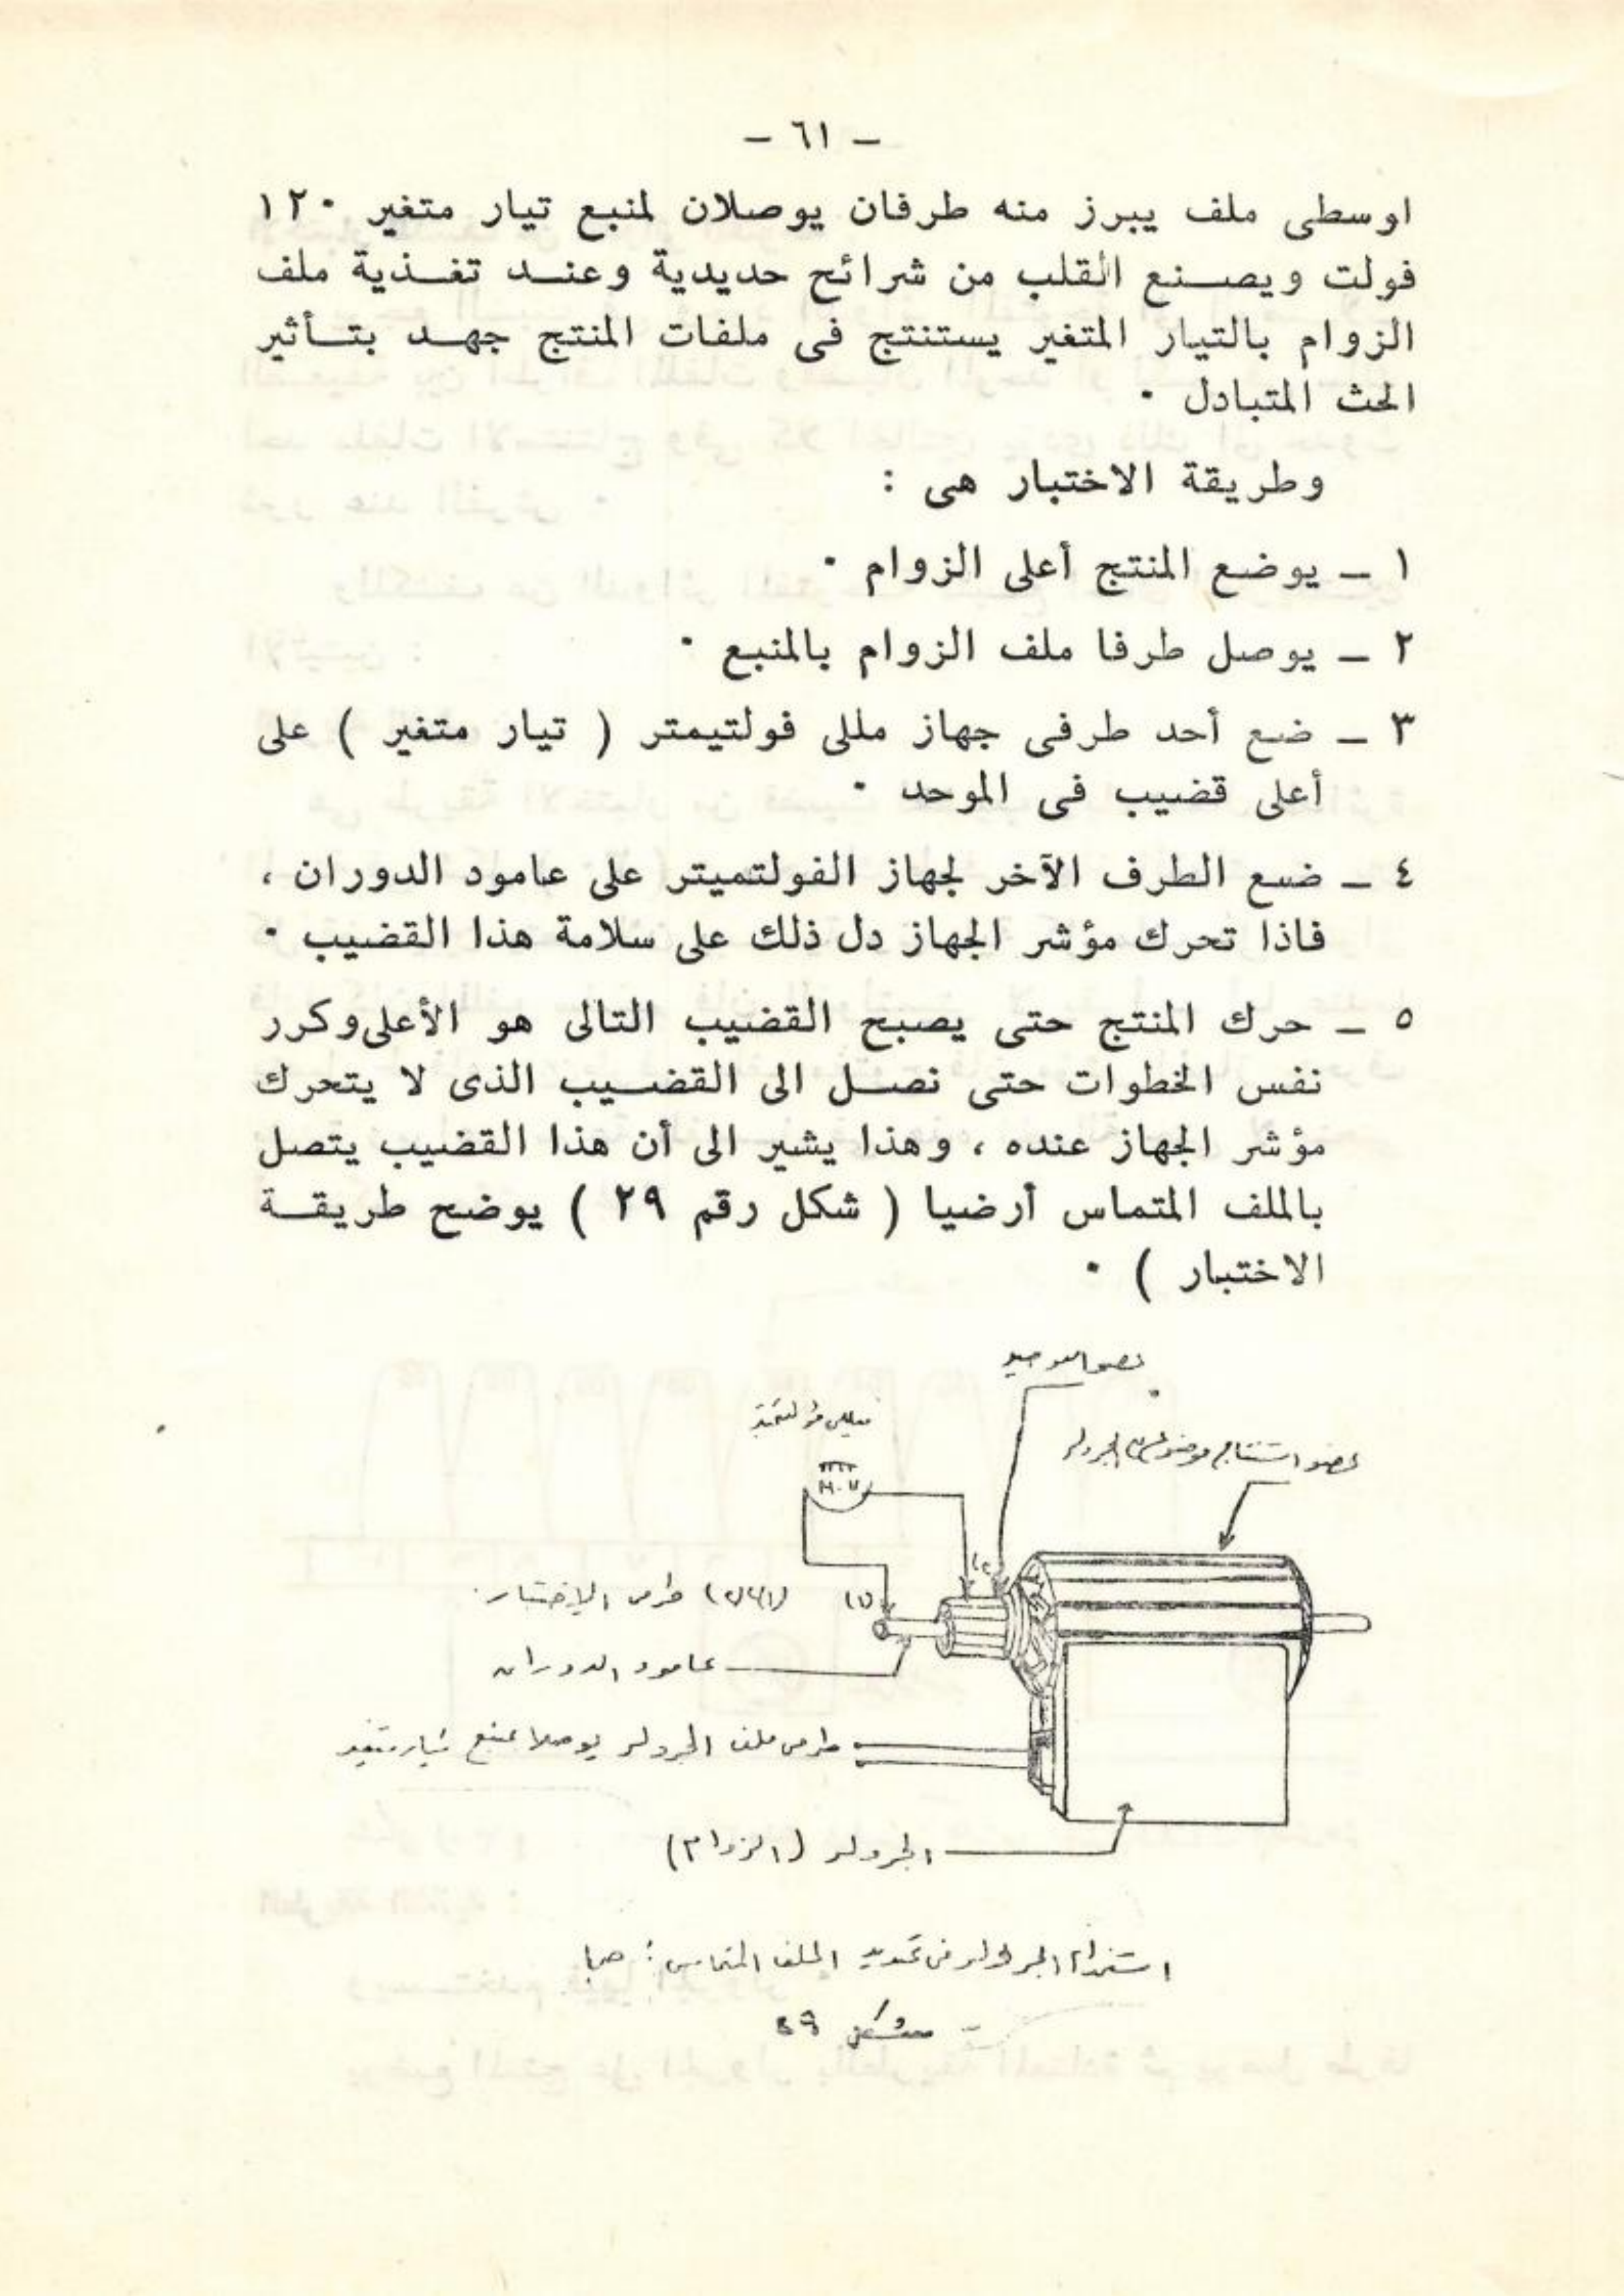 — ٦١ —
اوسطى ملف يبرز منه طرفان يوصلان لمنبع تيار متغير ١٢٠
فولت ويصنع القلب من شرائح حديدية وعند تغذية ملف
الزوام بالتيار المتغير يستنتج فى ملفات المنتج جهد بتأثير
الحث المتبادل ٠
وطريقة الاختبار هى :
١ ـ يوضع المنتج أعلى الزوام ٠
٢ ـ يوصل طرفا ملف الزوام بالمنبع ٠
٣ ـ ضع أحد طرفى جهاز مللى فولتيمتر ( تيار متغير ) على
أعلى قضيب فى الموحد ٠
٤ ـ ضع الطرف الآخر لجهاز الفولتميتر على عامود الدوران ،
فاذا تحرك مؤشر الجهاز دل ذلك على سلامة هذا القضيب ٠
٥ ـ حرك المنتج حتى يصبح القضيب التالى هو الأعلى وكرر
نفس الخطوات حتى نصل الى القضيب الذى لا يتحرك
مؤشر الجهاز عنده ، وهذا يشير الى أن هذا القضيب يتصل
بالملف المتماس أرضيا ( شكل رقم ٢٩ ) يوضح طريقة
الاختبار ) ٠
مللى فولتميتر
عضو استنتاج موضوع الجرولر
طرفى الاختبار
(١)
عامود الدوران
طرفى ملف الجرولر يوصلا بمنبع تيار متغير
الجرولر (الزوام)
استخدام الجرولر فى تحديد الملف المتماس
شكل ٢٩